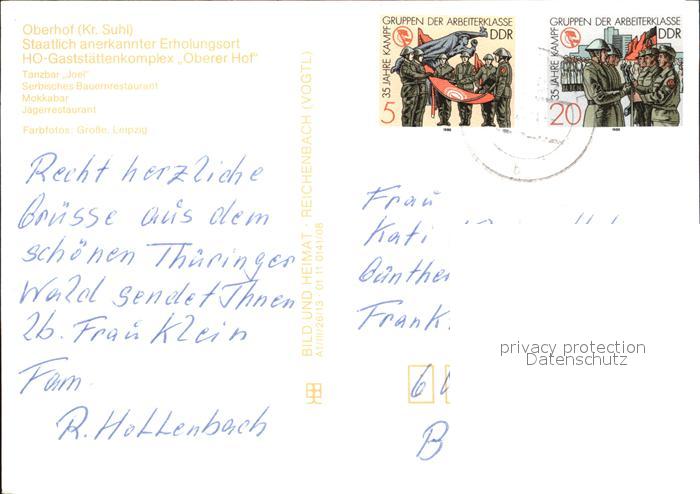 Oberhof (Kr. Suhl)
Staatlich anerkannter Erholungsort
HO-Gaststättenkomplex „Oberer Hof"
Tanzbar „Joel"
Serbisches Bauernrestaurant
Mokkabar
Jägerrestaurant
Farbfotos: Große, Leipzig
Recht herzliche
Grüsse aus dem
schönen Thüringer
Wald sendet Ihnen
lb. Frau Klein
Fam.
R. Hollenbach
BILD UND HEIMAT · REICHENBACH (VOGTL)
A1/III/26/13 · 01 11 0141/08
35 JAHRE KAMPF
GRUPPEN DER ARBEITERKLASSE
DDR
5
1988
35 JAHRE KAMPF
GRUPPEN DER ARBEITERKLASSE
DDR
20
1988
Frau
Kati
Günther
Frank
6
B
privacy protection
Datenschutz